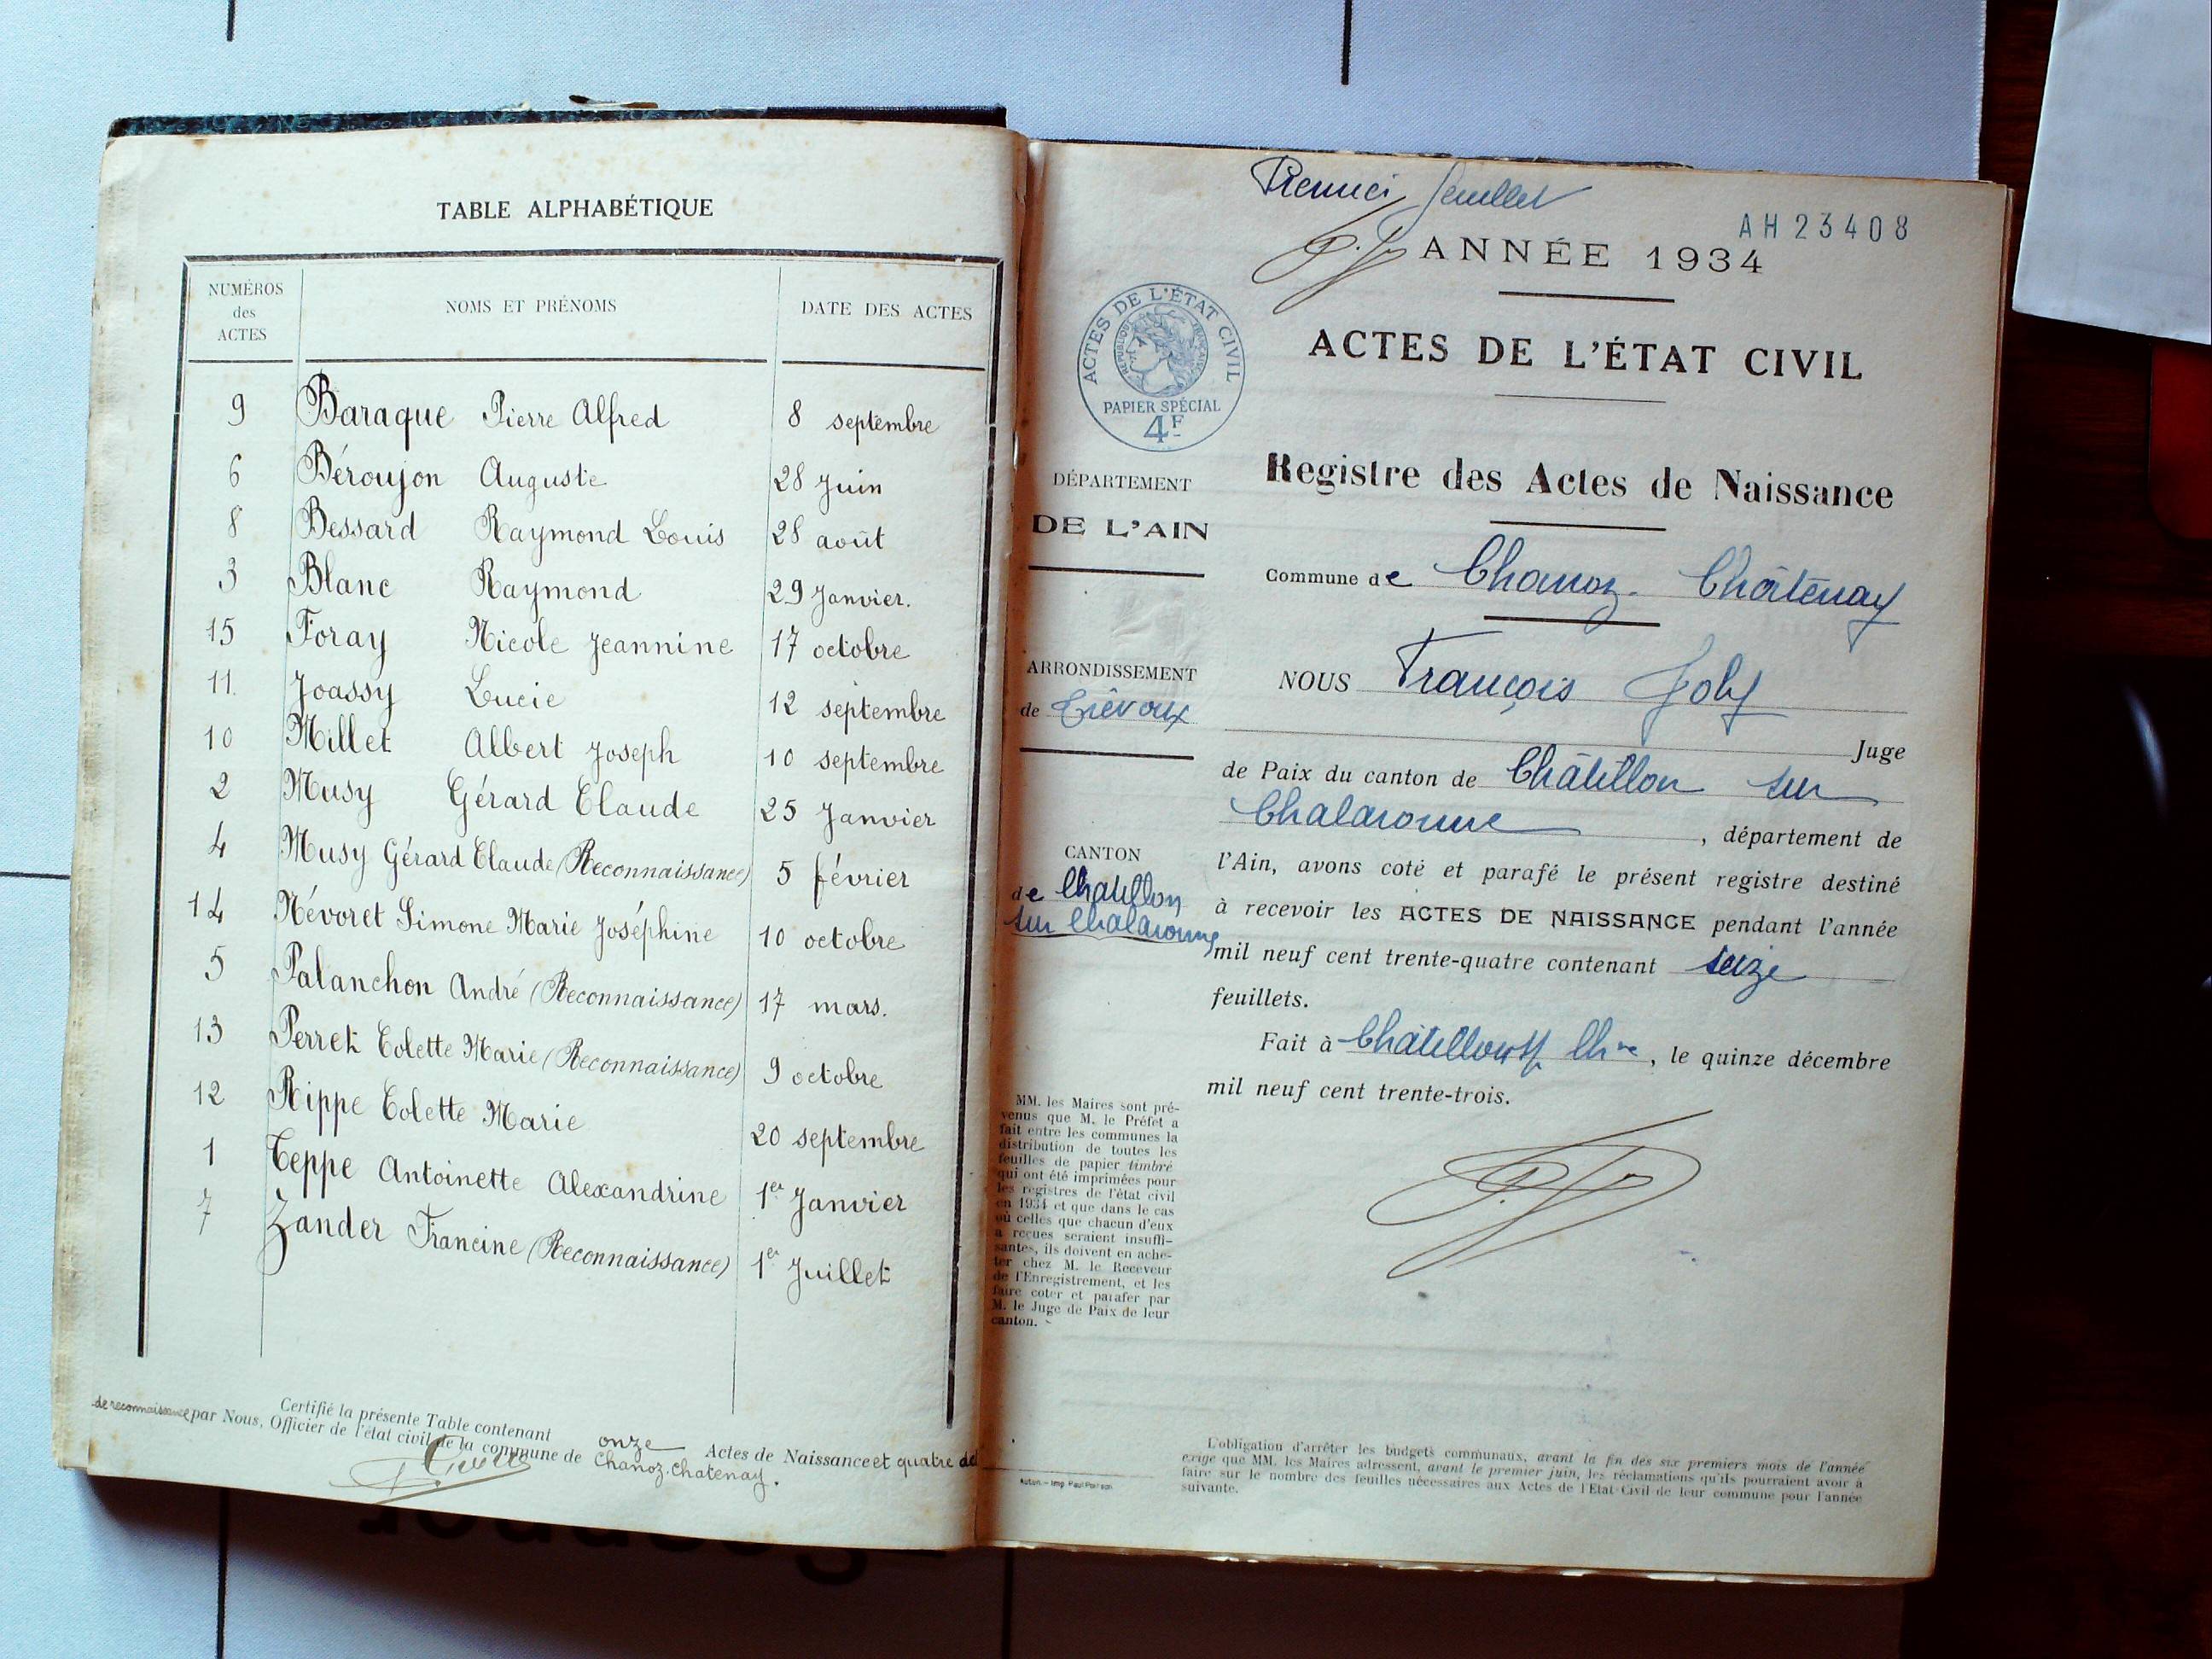 TABLE ALPHABÉTIQUE
NUMÉROS des ACTES NOMS ET PRÉNOMS DATE DES ACTES
9 Baraque Pierre Alfred 8 septembre
6 Béroujon Auguste 28 Juin
8 Bessard Raymond Louis 28 août
3 Blanc Raymond 29 Janvier.
15 Foray Nicole Jeannine 17 octobre
11. Joassy Lucie 12 septembre
10 Millet Albert Joseph 10 septembre
2 Musy Gérard Claude 25 Janvier
4 Musy Gérard Claude (Reconnaissance) 5 février
14 Névoret Simone Marie Joséphine 10 octobre
5 Palanchon André (Reconnaissance) 17 mars.
13 Perret Colette Marie (Reconnaissance) 9 octobre
12 Rippe Colette Marie 20 septembre
1 Teppe Antoinette Alexandrine 1er Janvier
7 Zander Francine (Reconnaissance) 1er Juillet
Certifié la présente Table contenant onze Actes de Naissance et quatre de
de reconnaissance par Nous, Officier de l'état civil de la commune de Chanoz-Chatenay.
Premier feuillet
AH23408
ANNÉE 1934
ACTES DE L'ÉTAT CIVIL
RÉPUBLIQUE FRANÇAISE
PAPIER SPÉCIAL
4F
ACTES DE L'ÉTAT CIVIL
Registre des Actes de Naissance
DÉPARTEMENT
DE L'AIN
Commune de Chanoz-Châtenay
ARRONDISSEMENT
de Trévoux
NOUS François Joly
Juge
de Paix du canton de Châtillon sur
Chalaronne, département de
CANTON
de Chatillon
sur Chalaronne
l'Ain, avons coté et parafé le présent registre destiné
à recevoir les ACTES DE NAISSANCE pendant l'année
mil neuf cent trente-quatre contenant seize
feuillets.
Fait à Châtillon s/ Chne, le quinze décembre
mil neuf cent trente-trois.
MM. les Maires sont pré-
venus que M. le Préfet a
fait entre les communes la
distribution de toutes les
feuilles de papier timbré
qui ont été imprimées pour
les registres de l'état civil
en 1934 et que dans le cas
où celles que chacun d'eux
a reçues seraient insuffi-
santes, ils doivent en ache-
ter chez M. le Receveur
de l'Enregistrement, et les
faire coter et parafer par
M. le Juge de Paix de leur
canton.
L'obligation d'arrêter les budgets communaux, avant la fin des six premiers mois de l'année
exige que MM. les Maires adressent, avant le premier juin, les réclamations qu'ils pourraient avoir à
faire sur le nombre des feuilles nécessaires aux Actes de l'Etat-Civil de leur commune pour l'année
suivante.
Autun. — Imp. Paul Poirson